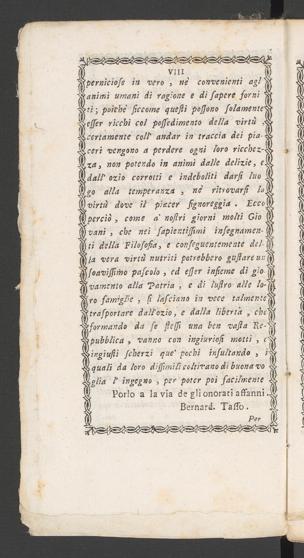 VIII
perniciose in vero, nè convenienti agl
animi umani di ragione e di sapere forni
ti; poichè siccome questi possono solamente
esser ricchi col possedimento della virtù
certamente coll' andar in traccia dei pia-
ceri vengono a perdere ogni loro ricchez-
za, non potendo in animi dalle delizie, e
dall' ozio corrotti e indeboliti darsi luo
go alla temperanza, nè ritrovarsi la
virtù dove il piacer signoreggia. Ecco
perciò, come a' nostri giorni molti Gio
vani, che nei sapientissimi insegnamen-
ti della Filosofia, e conseguentemente del-
la vera virtù nutriti potrebbero gustare un
soavissimo pascolo, ed esser insieme di gio
vamento alla Patria, e di lustro alle lo-
ro famiglie, si lasciano in vece talmente
trasportare dall'ozio, e dalla libertà, che
formando da se stessi una ben vasta Re-
pubblica, vanno con ingiuriosi motti, e
ingiusti scherzi que' pochi insultando, i
quali da loro dissimili coltivano di buona vo
glia l' ingegno, per poter poi facilmente
Porlo a la via de gli onorati affanni.
Bernard. Tasso.
Per